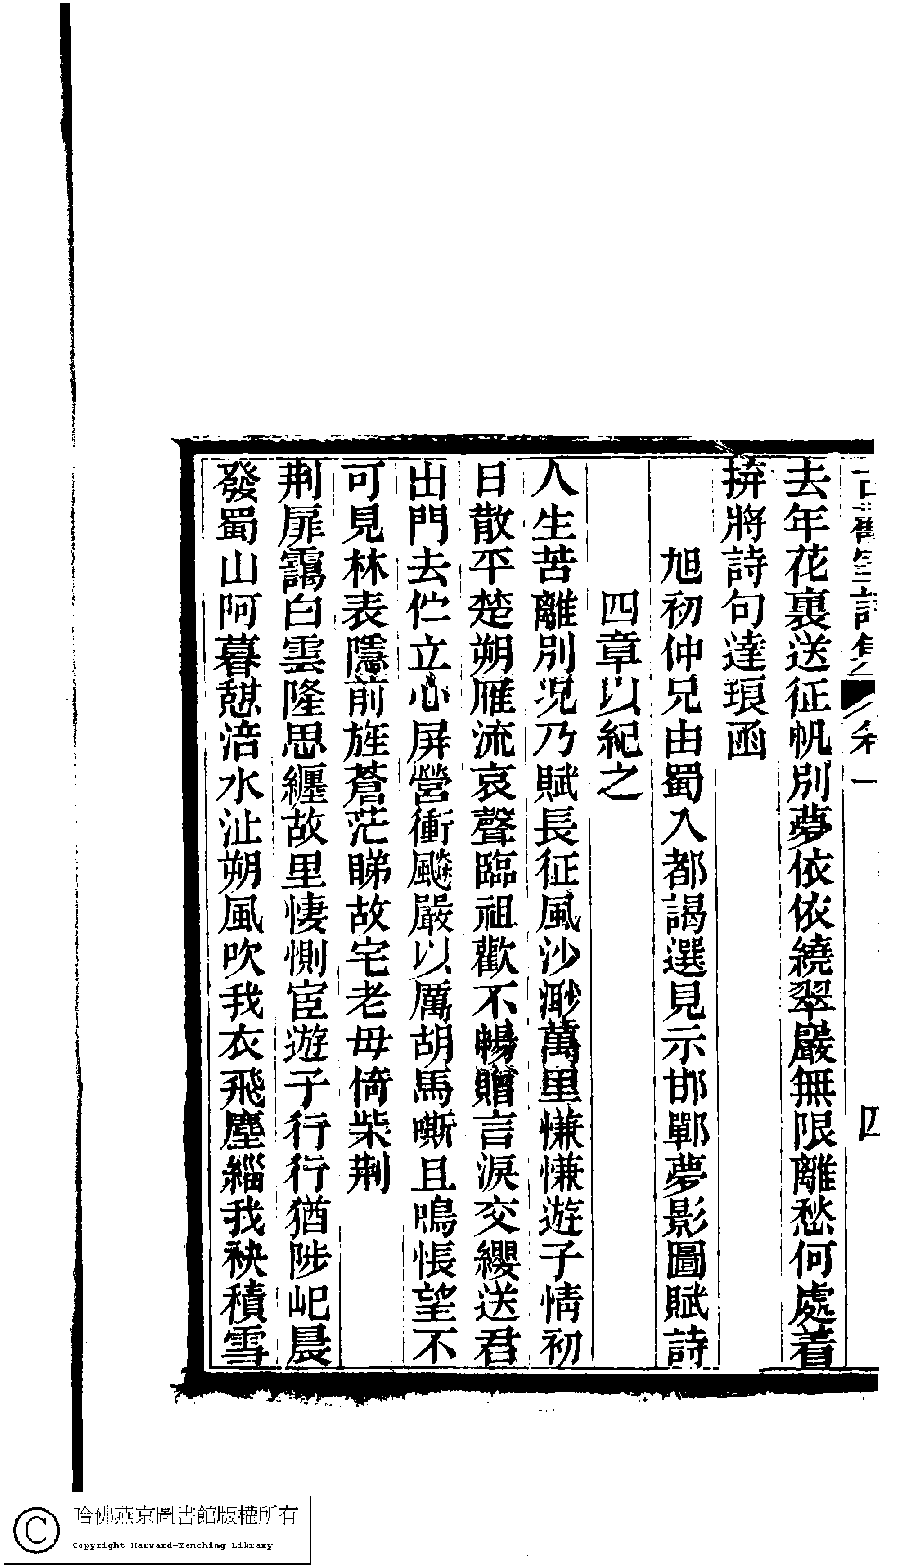 去年花裏送征帆別夢依依繞翠巖無限離愁何處着
拚將詩句達瑣函
旭初仲兄由蜀入都謁選見示邯鄲夢影圖賦詩
四章以紀之
人生苦離別况乃賦長征風沙渺萬里慊慊遊子情初
日散平楚朔雁流哀聲臨祖歡不暢贈言淚交纓送君
出門去伫立心屏營衝飈嚴以厲胡馬嘶且鳴悵望不
可見林表隱前旌蒼茫睇故宅老毋倚柴荆
荆扉靄白雲隆思纏故里悽惻宦遊子行行猶陟屺晨
發蜀山阿暮憇涪水沚朔風吹我衣飛塵緇我袂積雪
四
哈佛燕京圖書館版權所有
Copyright Harvard-Yenching Library